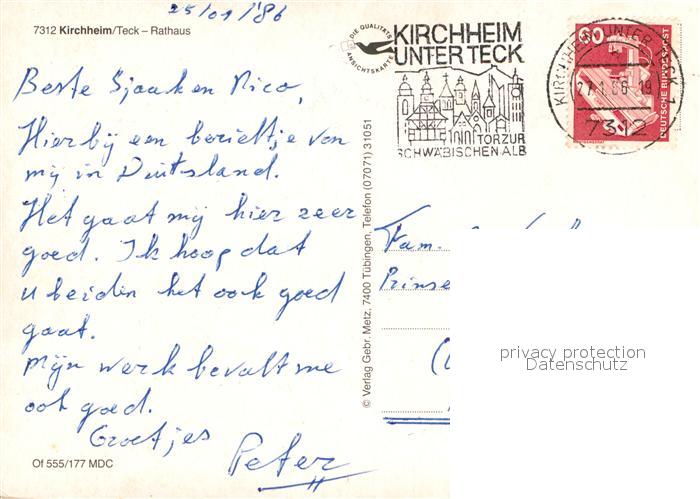 25/01/'86
7312 Kirchheim/Teck – Rathaus
Beste Sjaak en Nico,
Hierbij een berichtje van
mij in Duitsland.
Het gaat mij hier zeer
goed. Ik hoop dat
u beiden het ook goed
gaat.
Mijn werk bevalt me
ook goed.
Groetjes
Peter
Of 555/177 MDC
DIE QUALITÄTS
ANSICHTSKARTE
© Verlag Gebr. Metz, 7400 Tübingen, Telefon (07071) 31051
KIRCHHEIM
UNTER TECK
TOR ZUR
SCHWÄBISCHEN ALB
KIRCHHEIM UNTER TECK 1
27.1.86-19
7312
60
DEUTSCHE BUNDESPOST
Fam.
Prinse
privacy protection
Datenschutz